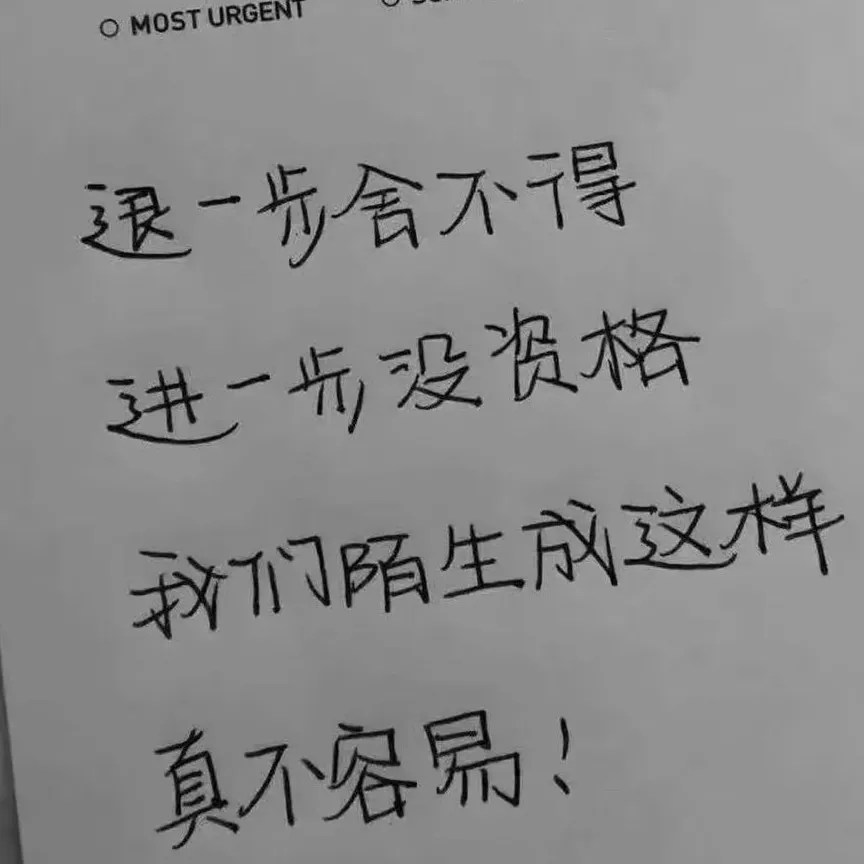 MOST URGENT
退一步舍不得
进一步没资格
我们陌生成这样
真不容易！